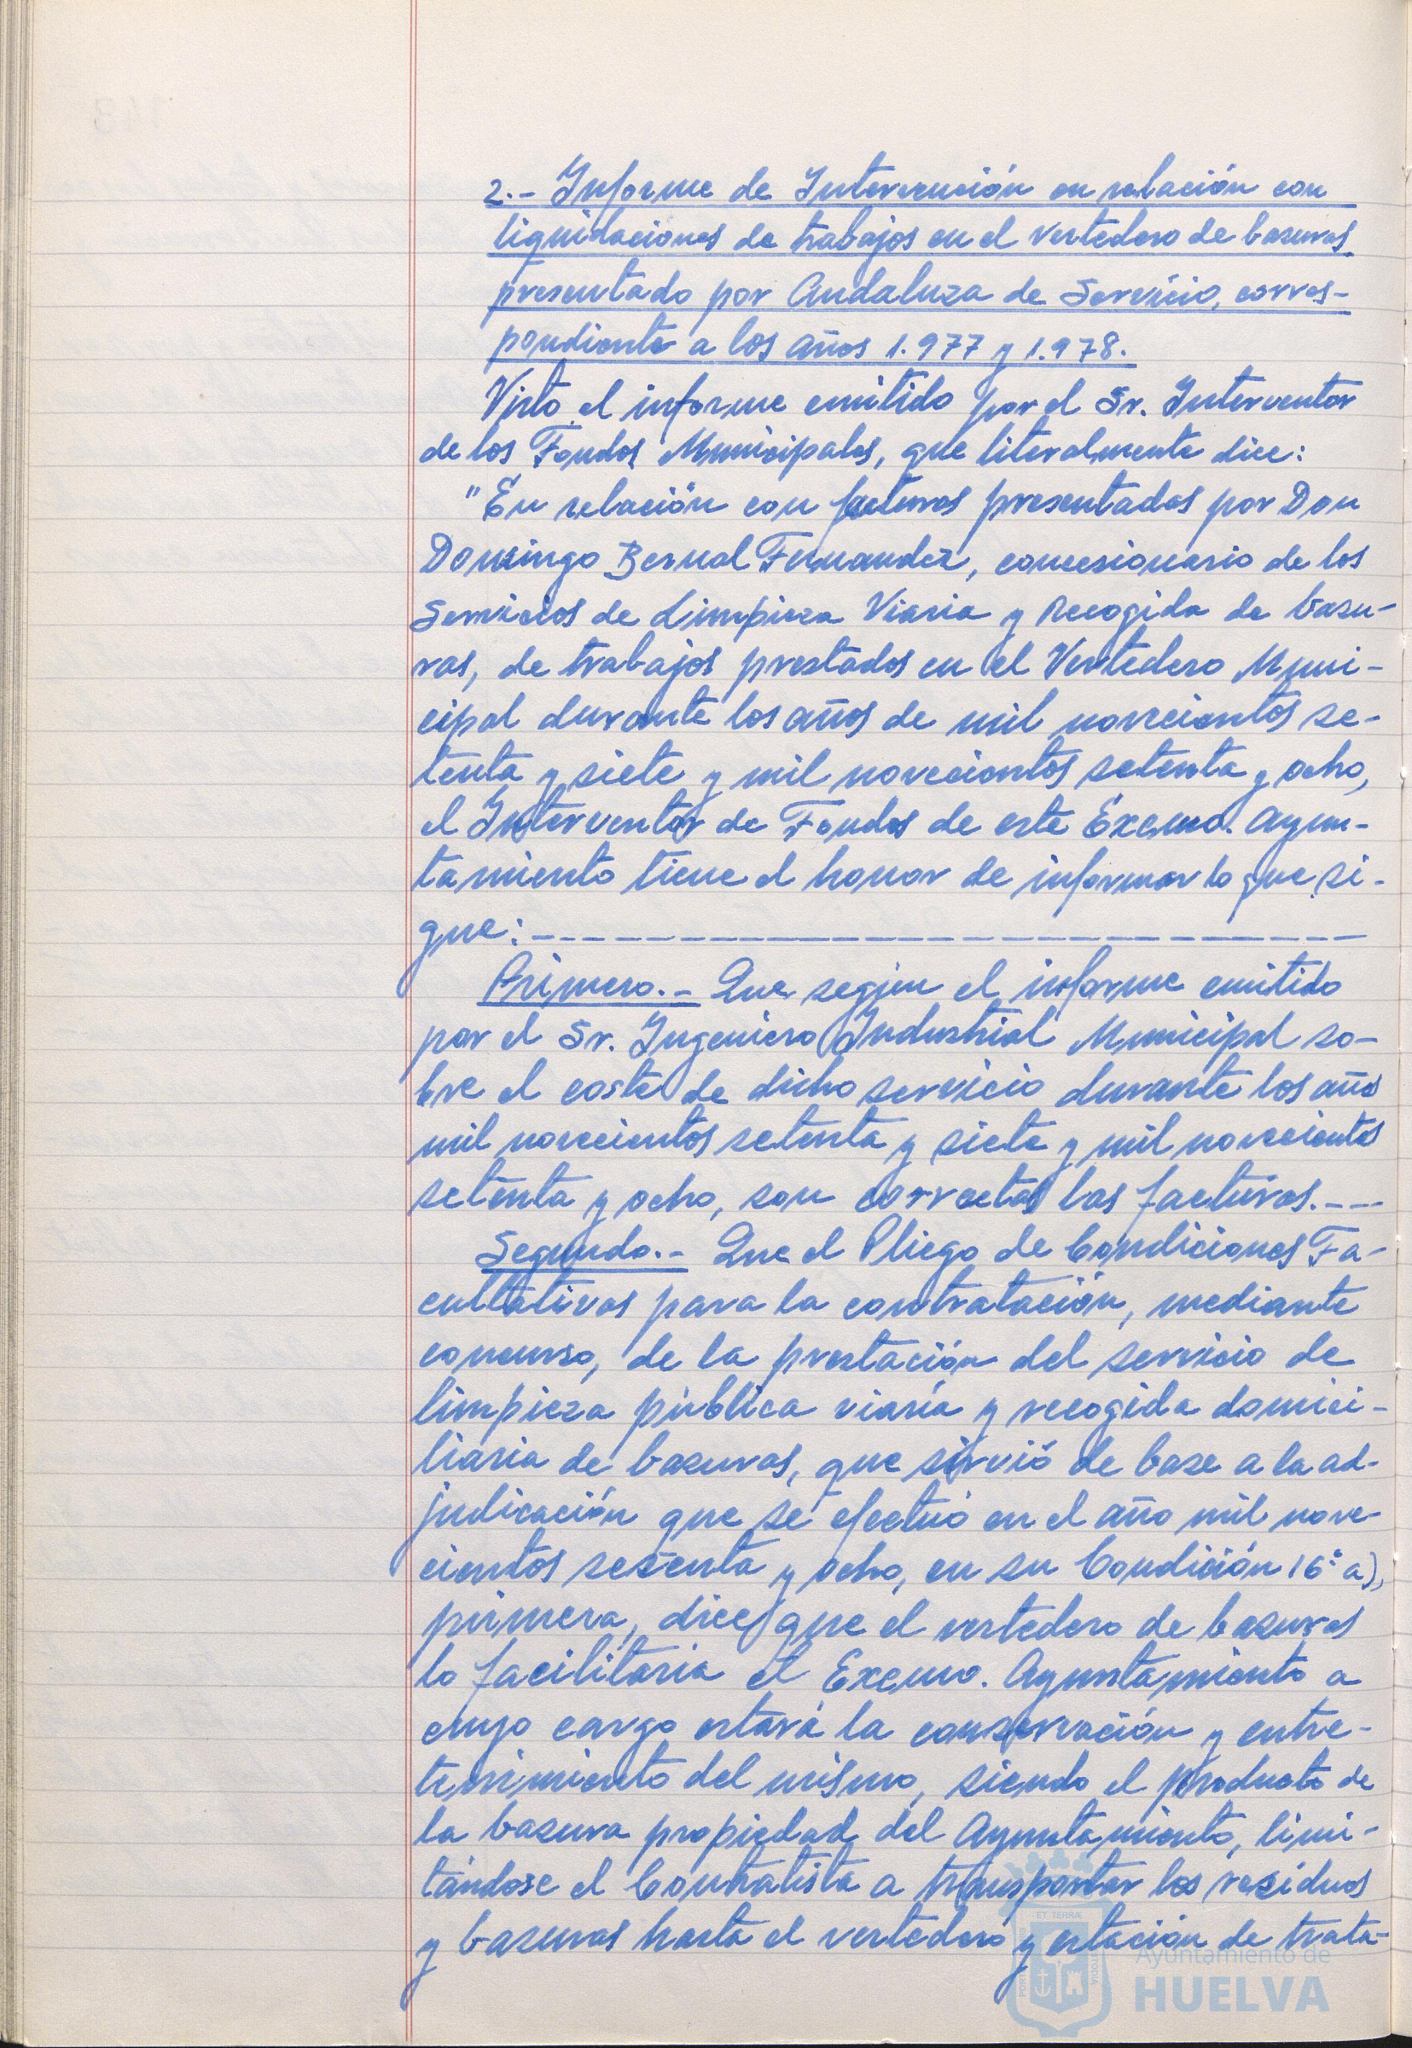 2.- Informe de Intervención en relación con
liquidaciones de trabajos en el vertedero de basuras,
presentado por Andaluza de Servicio, corres-
pondiente a los años 1.977 y 1.978.
Visto el informe emitido por el Sr. Interventor
de los Fondos Municipales, que literalmente dice:
"En relación con facturas presentadas por Don
Domingo Bernal Fernandez, concesionario de los
Servicios de Limpieza Viaria y Recogida de basu-
ras, de trabajos prestados en el Vertedero Muni-
cipal durante los años de mil novecientos se-
tenta y siete y mil novecientos setenta y ocho,
el Interventor de Fondos de este Excmo. Ayun-
tamiento tiene el honor de informar lo que si-
gue: ----------------------------
Primero.- Que según el informe emitido
por el Sr. Ingeniero Industrial Municipal so-
bre el coste de dicho servicio durante los años
mil novecientos setenta y siete y mil novecientos
setenta y ocho, son correctas las facturas.---
Segundo.- Que el Pliego de Condiciones Fa-
cultativas para la contratación, mediante
concurso, de la prestación del servicio de
limpieza pública viaria y recogida domici-
liaria de basuras, que sirvió de base a la ad-
judicación que se efectuó en el año mil nove-
cientos sesenta y ocho, en su Condición 16ª a),
primera, dice que el vertedero de basuras
lo facilitaria el Excmo. Ayuntamiento a
cuyo cargo estará la conservación y entre-
tenimiento del mismo, siendo el producto de
la basura propiedad del Ayuntamiento, limi-
tándose el Contratista a transportar los residuos
y basuras hasta el vertedero y estación de trata-
Ayuntamiento de
HUELVA